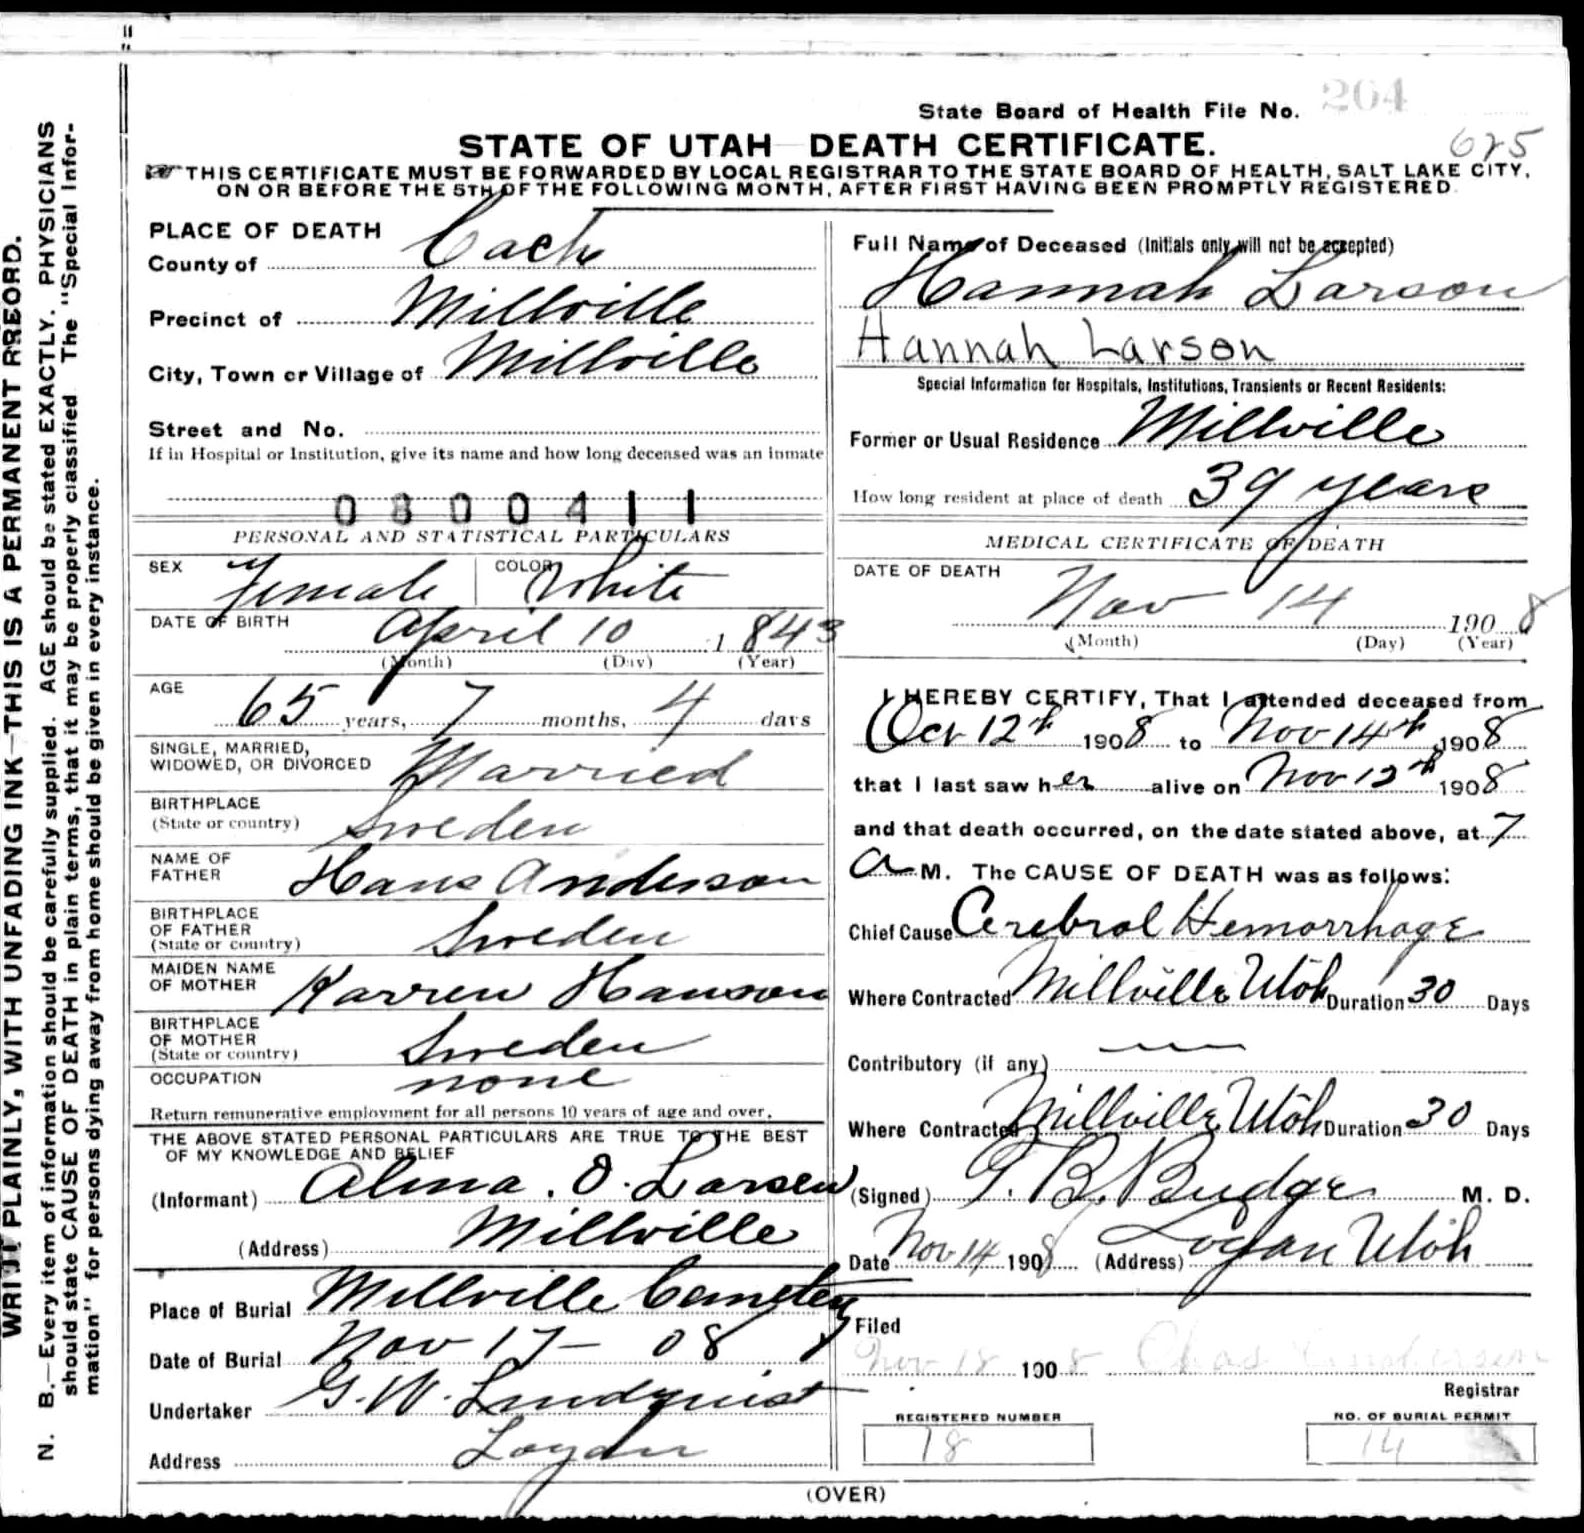 State Board of Health File No. 204
625
STATE OF UTAH DEATH CERTIFICATE.
THIS CERTIFICATE MUST BE FORWARDED BY LOCAL REGISTRAR TO THE STATE BOARD OF HEALTH, SALT LAKE CITY,
ON OR BEFORE THE 5TH OF THE FOLLOWING MONTH, AFTER FIRST HAVING BEEN PROMPTLY REGISTERED.
WRITE PLAINLY, WITH UNFADING INK—THIS IS A PERMANENT RREORD.
N. B.—Every item of information should be carefully supplied. AGE should be stated EXACTLY. PHYSICIANS
should state CAUSE OF DEATH in plain terms, that it may be properly classified The "Special Infor-
mation" for persons dying away from home should be given in every instance.
PLACE OF DEATH
County of Cache
Precinct of Millville
City, Town or Village of Millville
Street and No.
If in Hospital or Institution, give its name and how long deceased was an inmate
0800411
PERSONAL AND STATISTICAL PARTICULARS
SEX Female COLOR White
DATE OF BIRTH April 10 1843
(Month) (Day) (Year)
AGE 65 years, 7 months, 4 days
SINGLE, MARRIED,
WIDOWED, OR DIVORCED Married
BIRTHPLACE
(State or country) Sweden
NAME OF
FATHER Hans Anderson
BIRTHPLACE
OF FATHER
(State or country) Sweden
MAIDEN NAME
OF MOTHER Karren Hanson
BIRTHPLACE
OF MOTHER
(State or country) Sweden
OCCUPATION none
Return remunerative employment for all persons 10 years of age and over.
THE ABOVE STATED PERSONAL PARTICULARS ARE TRUE TO THE BEST
OF MY KNOWLEDGE AND BELIEF
(Informant) Alma. O. Larsen
(Address) Millville
Place of Burial Millville Cemetery
Date of Burial Nov 17 - 08
Undertaker G. W. Lindquist
Address Logan
Full Name of Deceased (Initials only will not be accepted)
Hannah Larson
Hannah Larson
Special Information for Hospitals, Institutions, Transients or Recent Residents:
Former or Usual Residence Millville
How long resident at place of death 39 years
MEDICAL CERTIFICATE OF DEATH
DATE OF DEATH
Nov 14 1908
(Month) (Day) (Year)
I HEREBY CERTIFY, That I attended deceased from
Oct 12th 1908 to Nov 14th 1908
that I last saw her alive on Nov 12th 1908
and that death occurred, on the date stated above, at 7
A M. The CAUSE OF DEATH was as follows:
Chief Cause Cerebral Hemorrhage
Where Contracted Millville Utah Duration 30 Days
Contributory (if any)
Where Contracted Millville Utah Duration 30 Days
(Signed) T. B. Budge M. D.
Date Nov 14 1908 (Address) Logan Utah
Filed
Nov 18 1908 Chas Anderson
Registrar
REGISTERED NUMBER
18
NO. OF BURIAL PERMIT
14
(OVER)